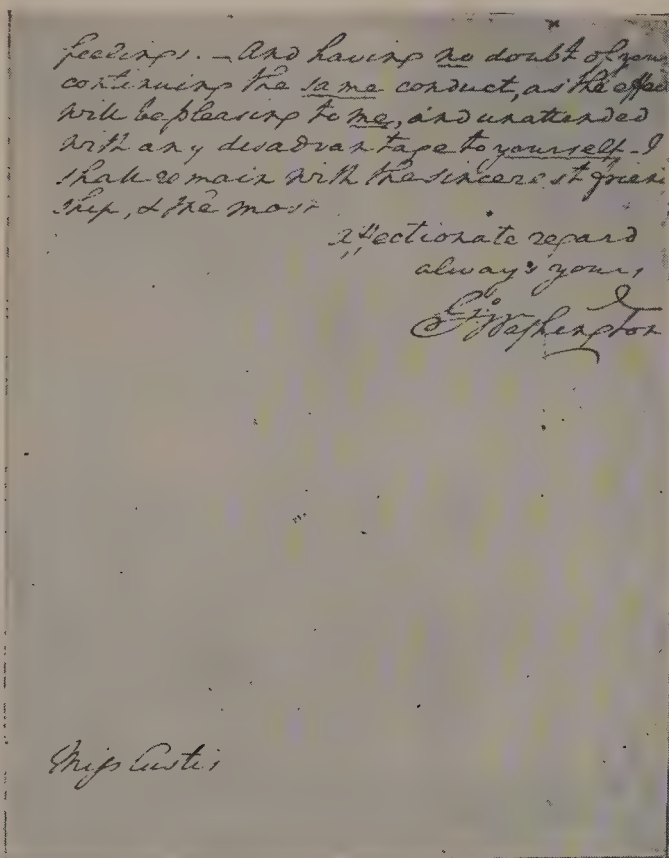 feelings. — And having no doubt of your
continuing the same conduct, as the effect
will be pleasing to me, and unattended
with any disadvantage to yourself — I
shall remain with the sincerest frien
ship, & the most
affectionate regard
always yours,
G: Washington
Miss Custis